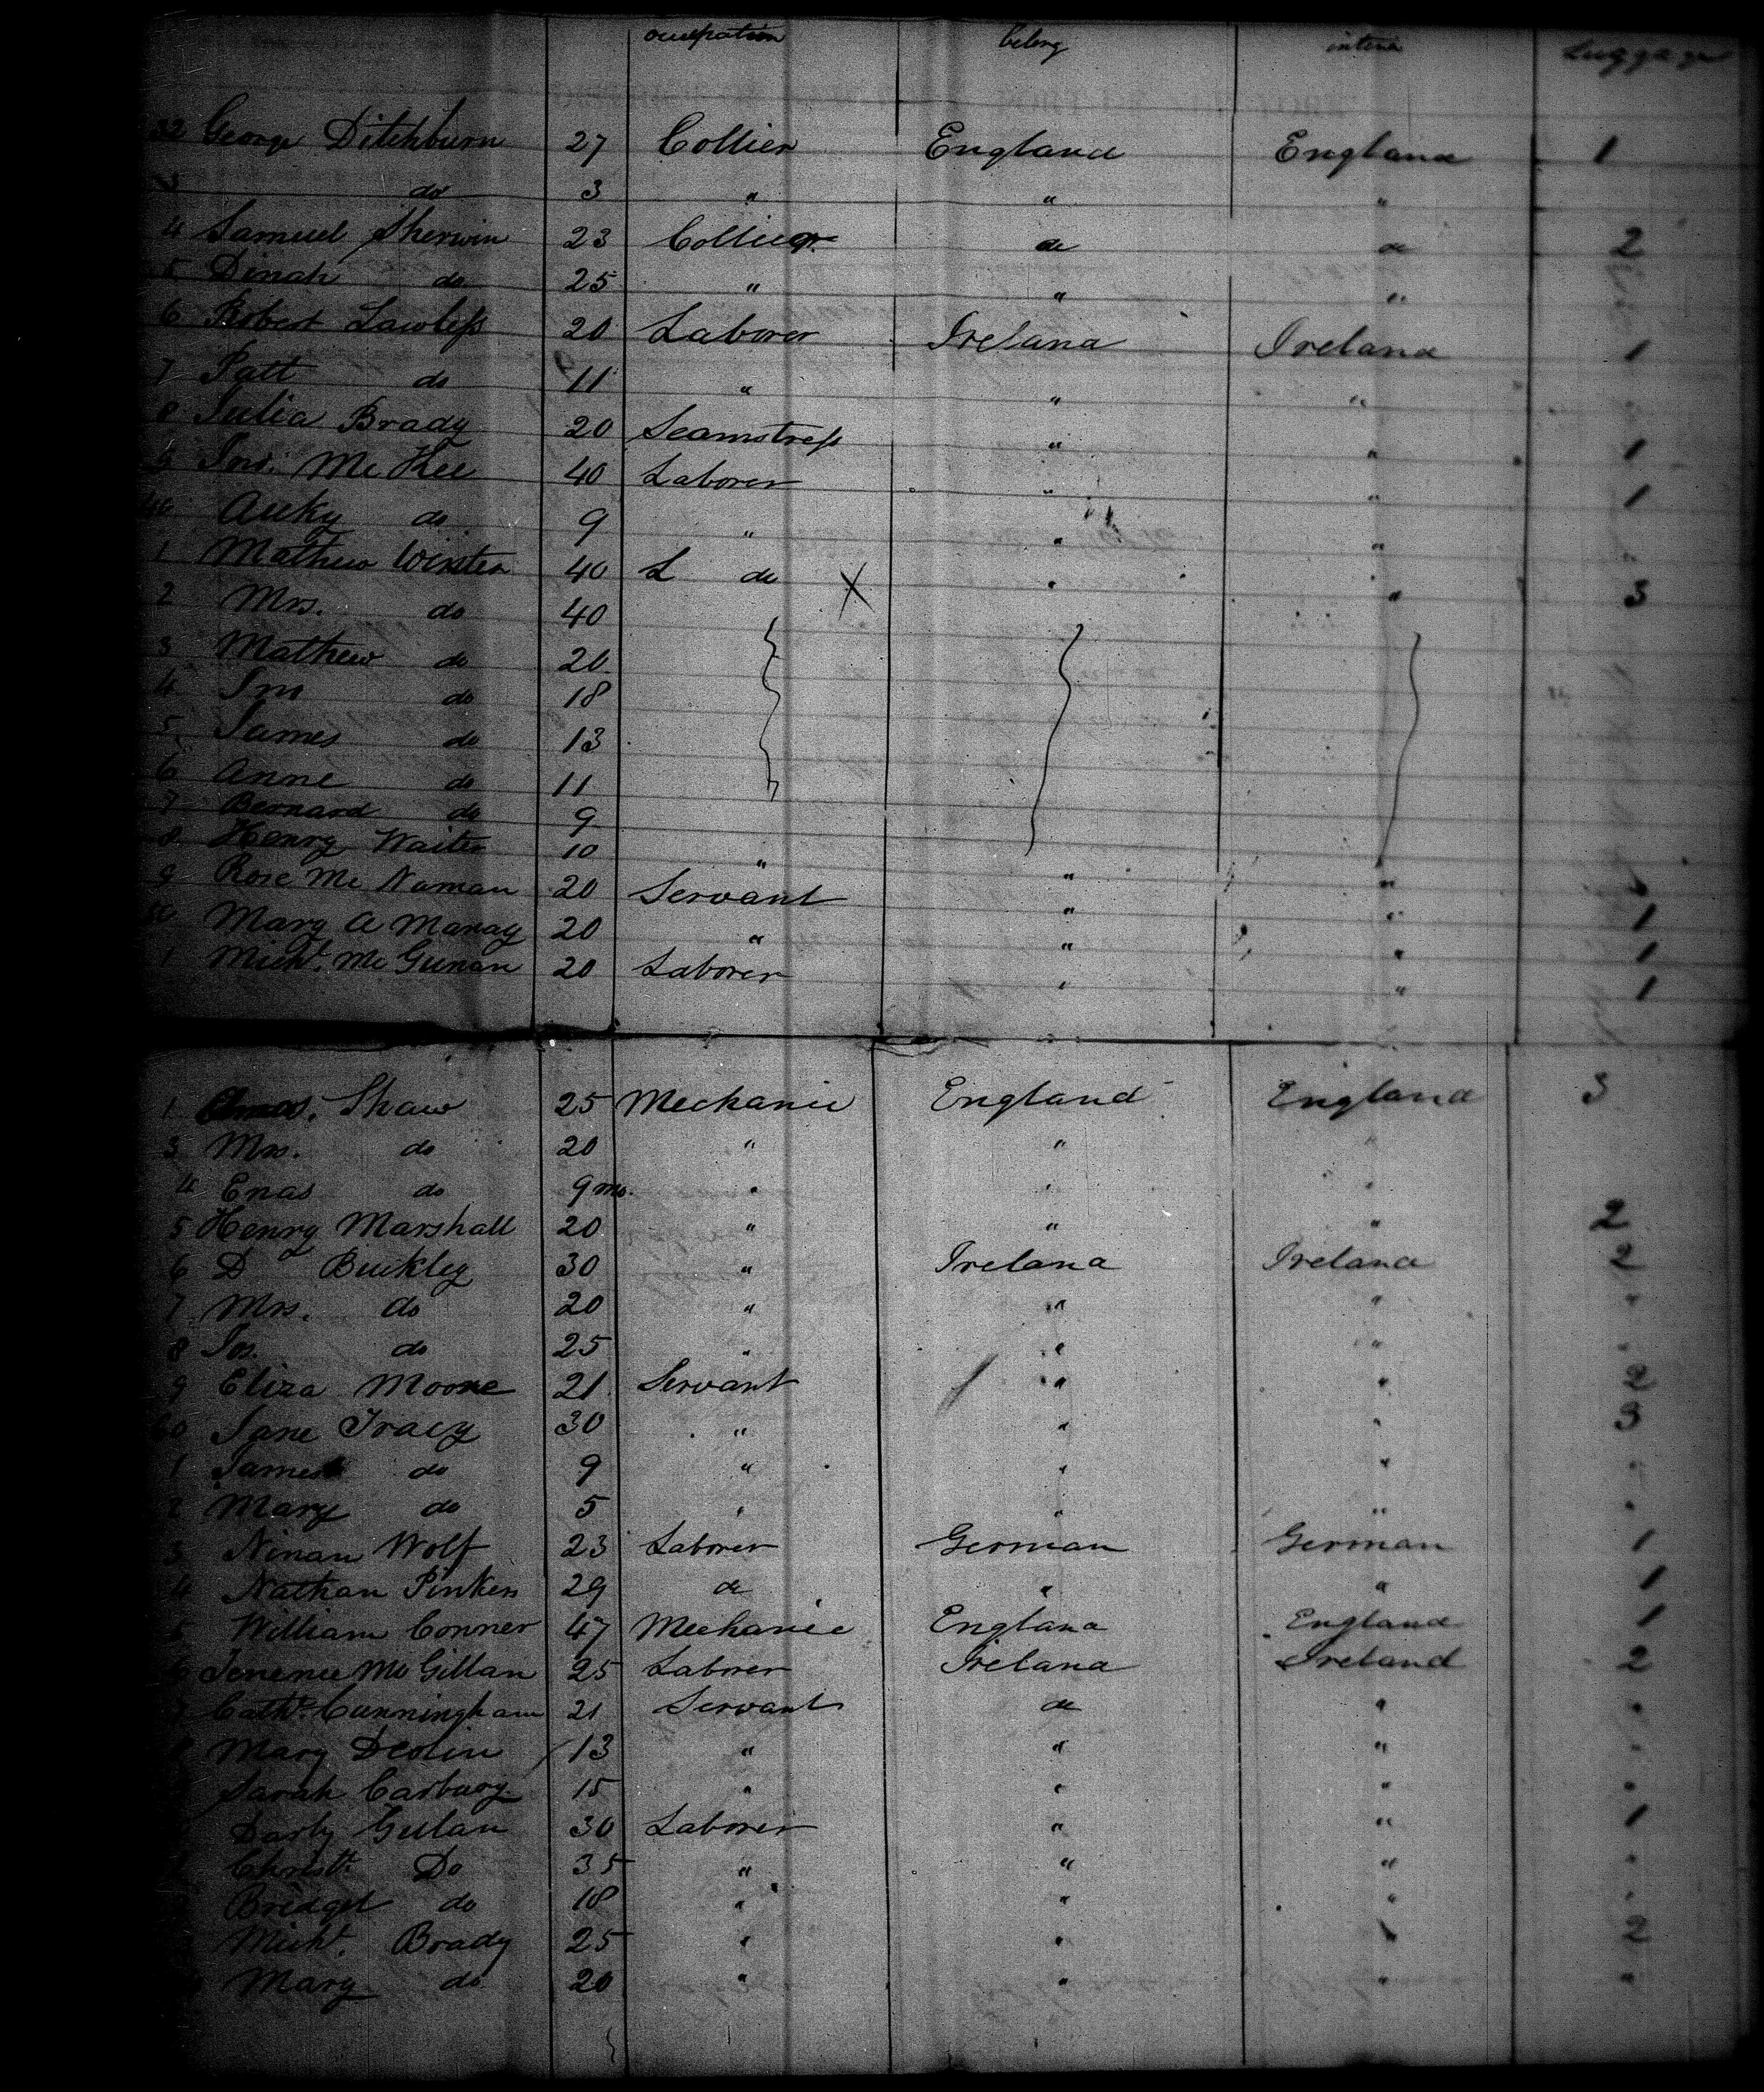 occupation belong intend Luggage
32 George Ditchburn 27 Collier England England 1
3 do 3 " " "
4 Samuel Sherwin 23 Collier do do 2
5 Dinah do 25 " " "
6 Robert Lawless 20 Laborer Ireland Ireland 1
7 Patt do 11 " " "
8 Julia Brady 20 Seamstress " " 1
9 Jno. Mc Kee 40 Laborer " " 1
40 do 9 " " "
1 Mathew Winter 40 L do X " " 3
2 Mrs. do 40
3 Mathew do 20
4 Jno do 18
5 James do 13
6 Anne do 11
7 Bernard do 9
8 Henry Waiter 10 " " "
9 Rose Mc Naman 20 Servant " " 1
50 Mary A 20 " " " 1
1 Michl. Mc Gunan 20 Laborer " " 1
1 Shaw 25 Mechanic England England 3
3 Mrs. do 20 " "
4 Enas do 9 mo. " " "
5 Henry Marshall 20 " " " 2
6 D Buckley 30 " Ireland Ireland 2
7 Mrs. do 20 " " " "
8 Jos. do 25 " " " "
9 Eliza Moore 21 Servant " " 2
60 Jane Tracy 30 " " " 3
1 James do 9 " " " "
2 Mary do 5 " " " "
3 Ninan Wolf 23 Laborer German German 1
4 Nathan Pinkers 29 do " " 1
5 William Conner 47 Mechanic England England 1
6 Terence Mc Gillan 25 Laborer Ireland Ireland 2
7 Cathe. Cunningham 21 Servant do " "
8 Mary Devlin 13 " " " "
Sarah Carbury 15 " " " "
Darby Gulan 30 Laborer " " 1
Do 35 " " " "
Bridget do 18 " " " "
Michl. Brady 25 " " " 2
Mary do 20 " " " "